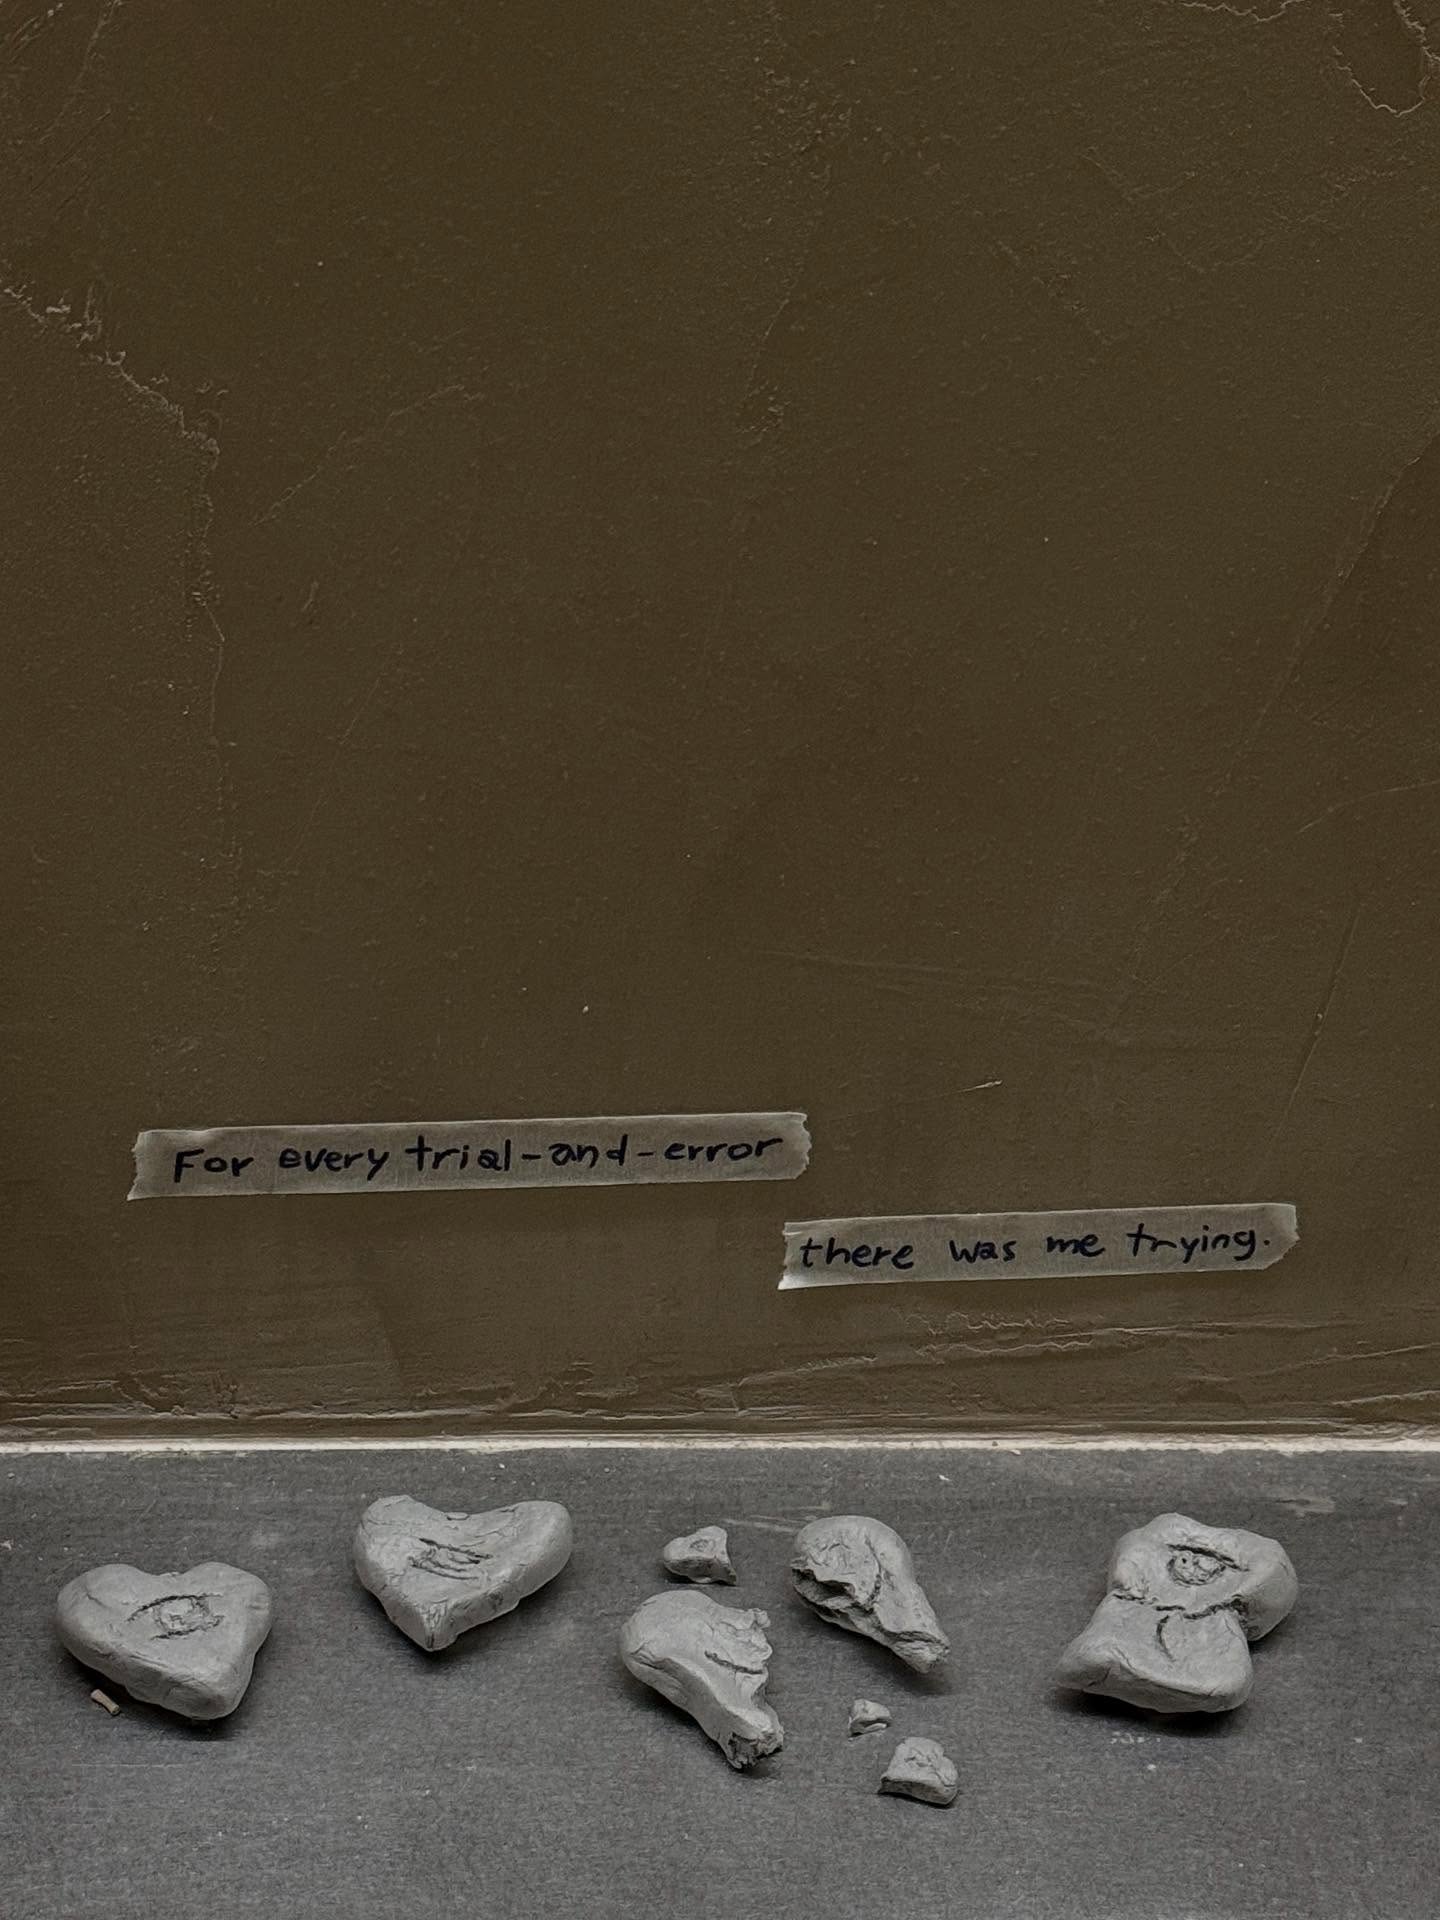 For every trial-and-error
there was me trying.